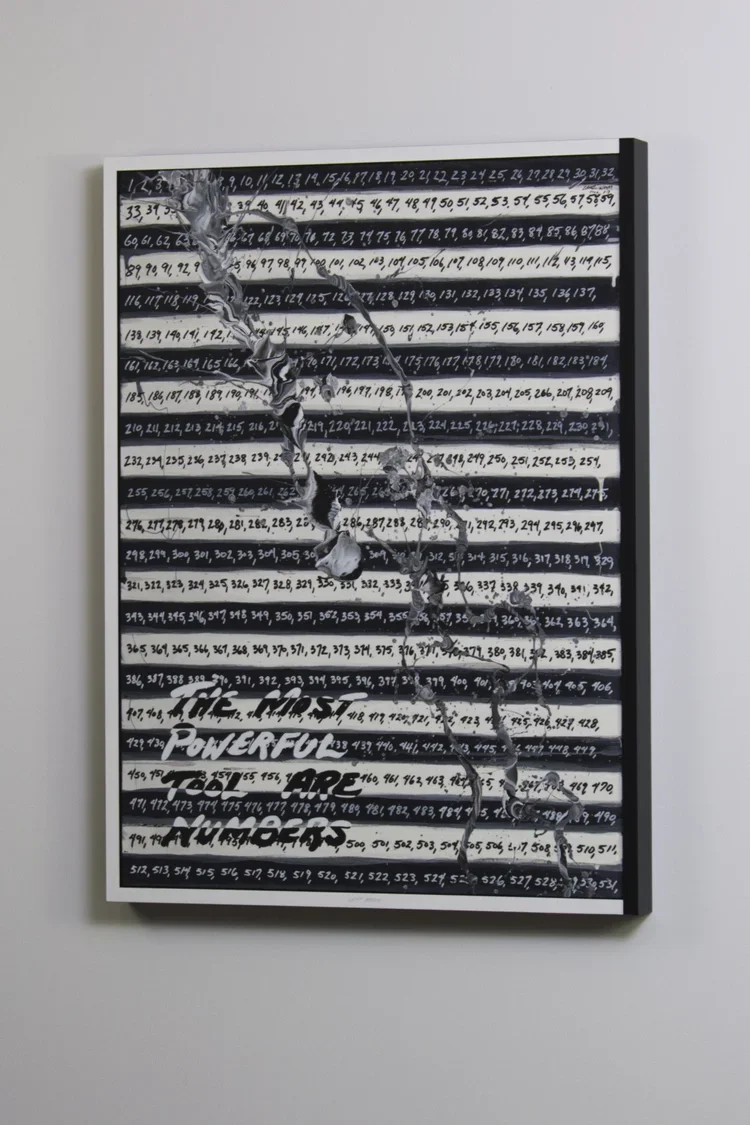 1, 2, 3 9, 10, 11, 12, 13, 14, 15, 16, 17, 18, 19, 20, 21, 22, 23, 24, 25, 26, 27, 28, 29, 30, 31, 32,
33, 34, 39, 40, 41, 42, 43, 44, 45, 46, 47, 48, 49, 50, 51, 52, 53, 54, 55, 56, 57, 58, 59,
60, 61, 62, 67, 68, 69, 70, 72, 73, 74, 75, 76, 77, 78, 79, 80, 81, 82, 83, 84, 85, 86, 87, 88,
89, 90, 91, 92, 96, 97, 98, 99, 100, 101, 102, 103, 104, 105, 106, 107, 108, 109, 110, 111, 112, 113, 114, 115,
116, 117, 118, 119, 122, 123, 124, 125, 126, 127, 128, 129, 130, 131, 132, 133, 134, 135, 136, 137,
138, 139, 140, 141, 142, 145, 146, 147, 150, 151, 152, 153, 154, 155, 156, 157, 158, 159, 160,
161, 162, 163, 164, 165, 166, 171, 172, 173, 175, 176, 177, 178, 179, 180, 181, 182, 183, 184,
185, 186, 187, 188, 189, 190, 191, 196, 197, 198, 200, 201, 202, 203, 204, 205, 206, 207, 208, 209,
210, 211, 212, 213, 214, 215, 216, 219, 220, 221, 222, 223, 224, 225, 226, 227, 228, 229, 230, 231,
232, 234, 235, 236, 237, 238, 239, 242, 243, 244, 249, 250, 251, 252, 253, 254,
255, 256, 257, 258, 259, 260, 261, 262 265, 270, 271, 272, 273, 274, 275,
276, 277, 278, 279, 280, 281, 282, 283, 286, 287, 288, 289, 290, 292, 293, 294, 295, 296, 297,
298, 299, 300, 301, 302, 303, 304, 305, 309, 312, 314, 315, 316, 317, 318, 319, 329
321, 322, 323, 324, 325, 326, 327, 328, 329, 330, 331, 332, 333, 336, 337, 338, 339, 340, 341, 342,
343, 344, 345, 346, 347, 348, 349, 350, 351, 352, 353, 354, 355, 360, 362, 363, 364,
365, 364, 365, 366, 367, 368, 369, 370, 371, 372, 373, 374, 375, 376, 377, 379, 380, 381, 382, 383, 384, 385,
386, 387, 388, 389, 390, 391, 392, 393, 394, 395, 396, 397, 398, 399, 400, 401, 403, 404, 405, 406,
407, 408, 418, 419, 420, 421, 422, 423, 425, 426, 427, 428,
THE MOST
429, 430 438, 439, 440, 441, 442, 445, 447, 448, 449,
POWERFUL
450, 455, 456, 460, 461, 462, 463, 469, 470,
TOOL ARE
471, 472, 473, 474, 475, 476, 477, 478, 479, 480, 481, 482, 483, 484, 488, 490,
491, 500, 501, 502, 503, 504, 505, 506, 508, 510, 511,
NUMBERS
512, 513, 514, 515, 516, 517, 518, 519, 520, 521, 522, 523, 524, 526, 527, 528, 530, 531,